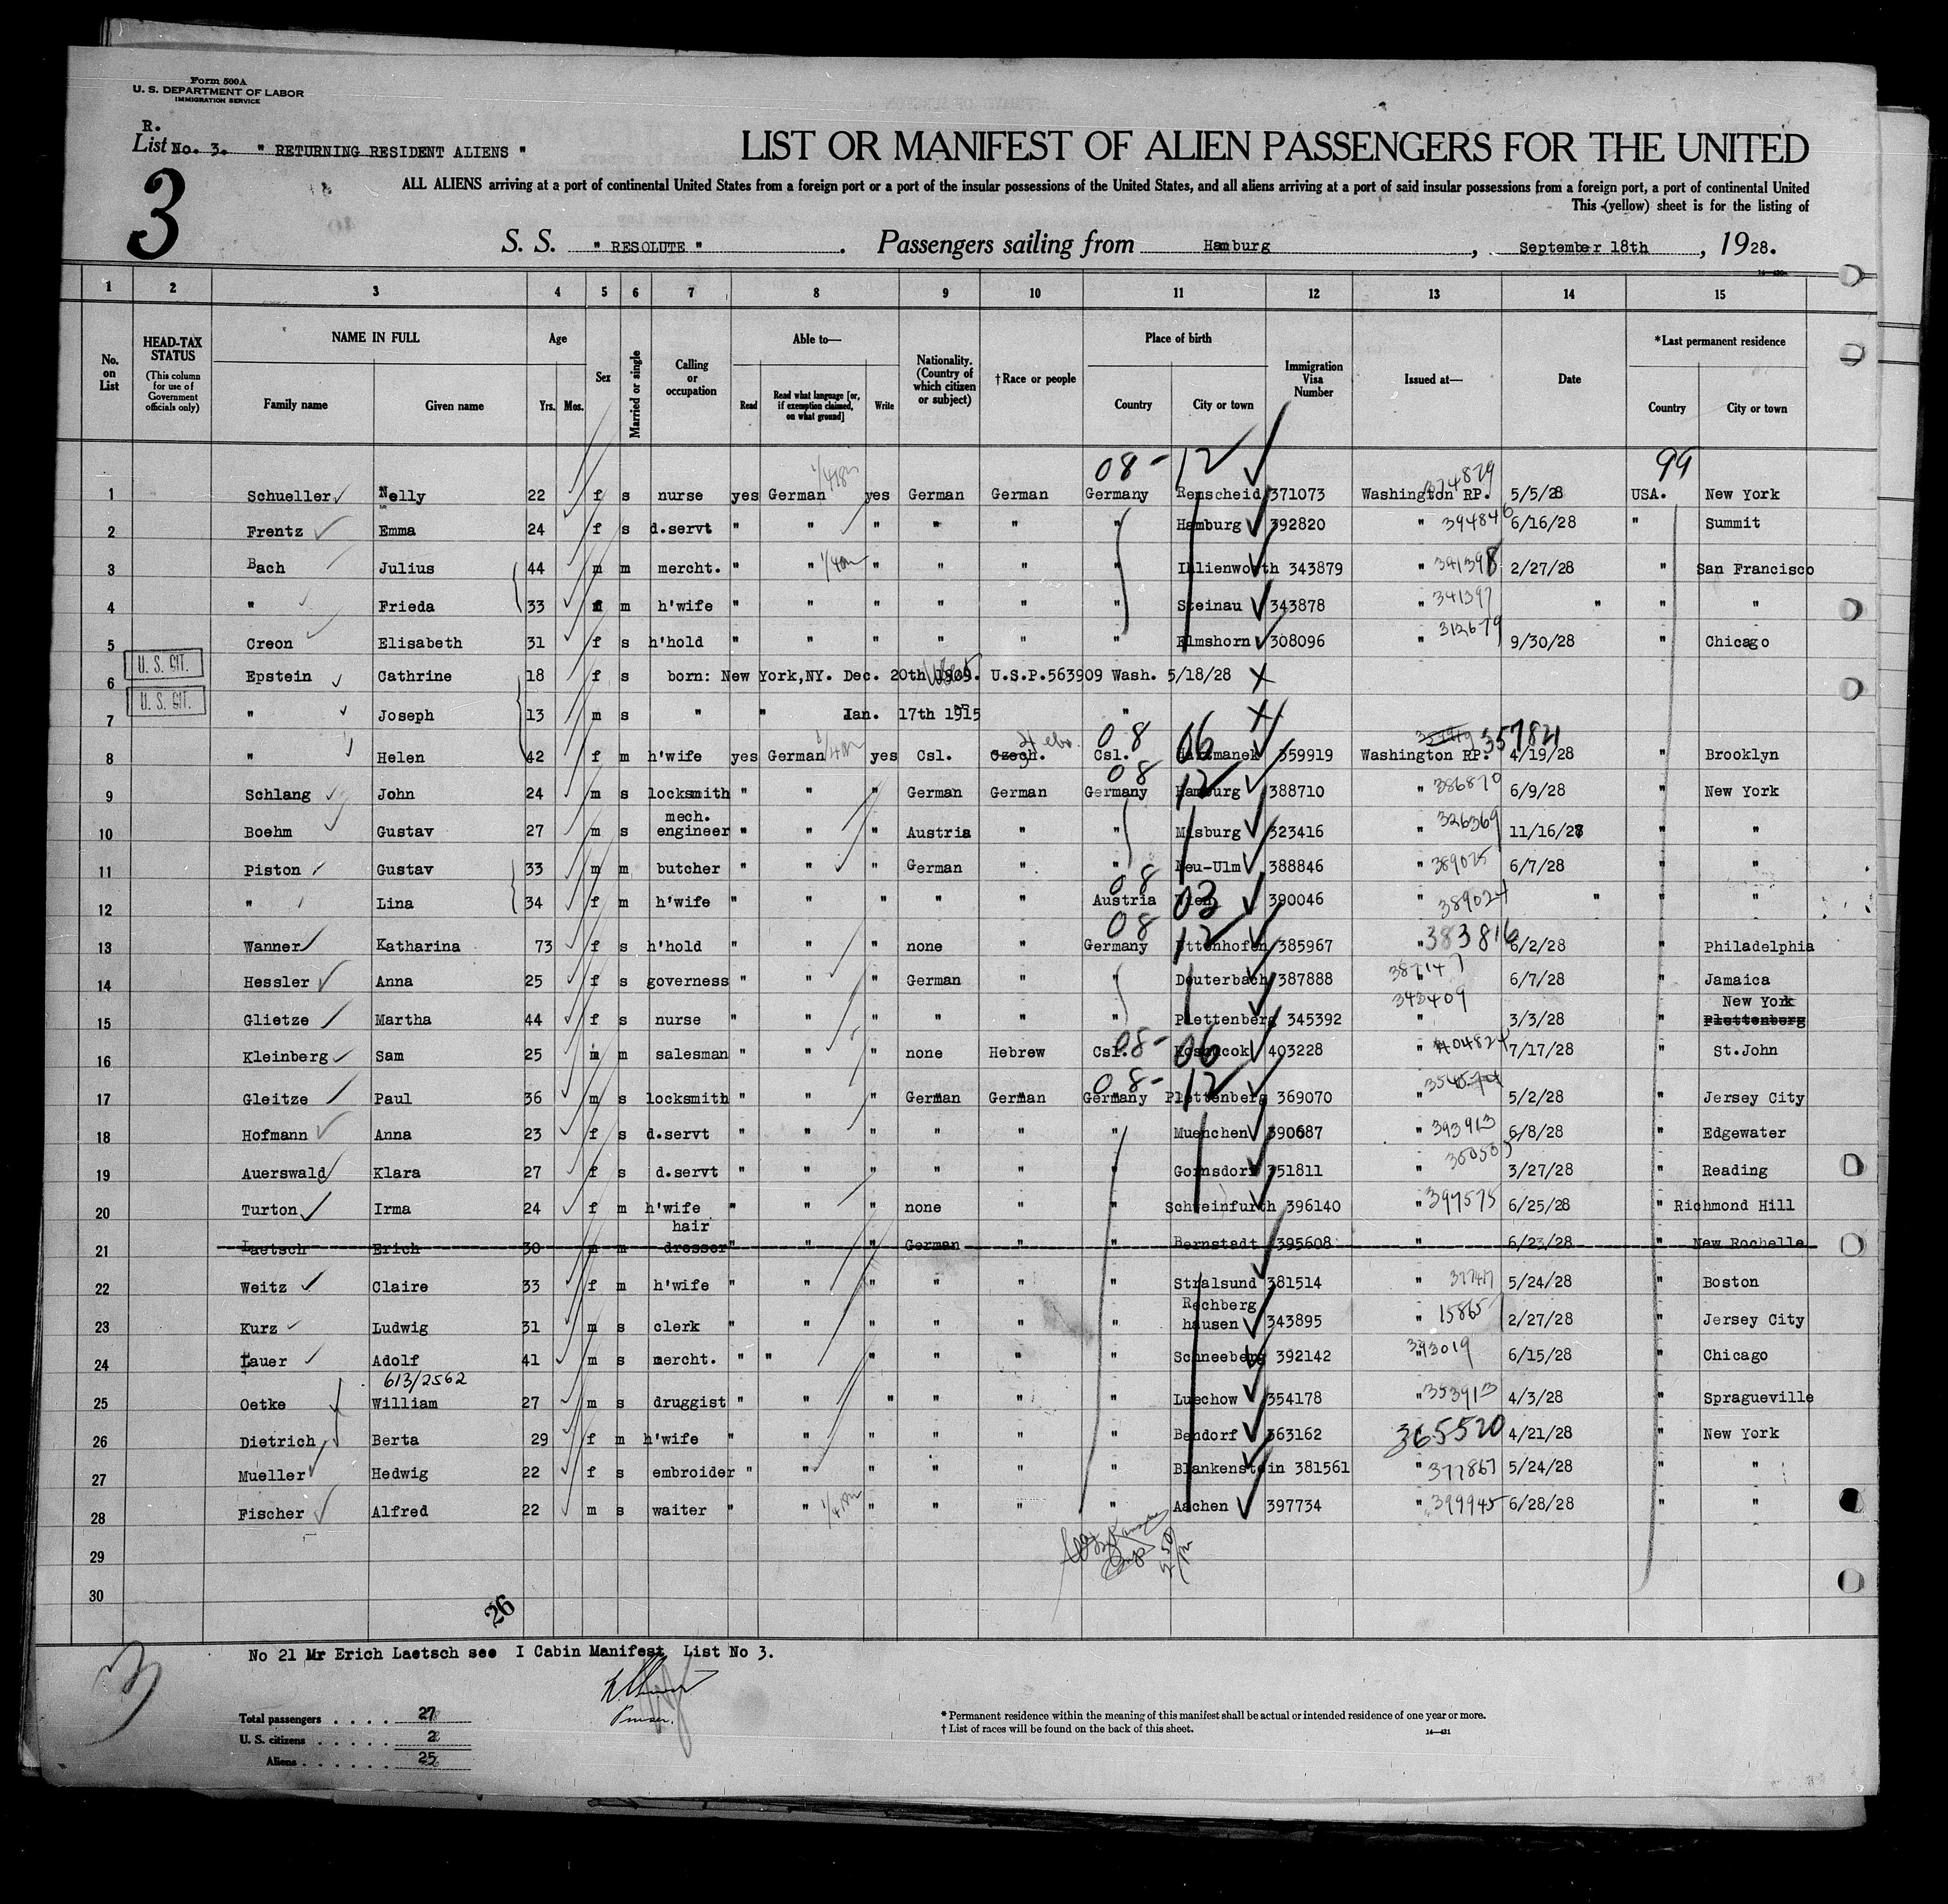 Form 500A
U. S. DEPARTMENT OF LABOR
IMMIGRATION SERVICE
R.
List No. 3. " RETURNING RESIDENT ALIENS "
LIST OR MANIFEST OF ALIEN PASSENGERS FOR THE UNITED
3
ALL ALIENS arriving at a port of continental United States from a foreign port or a port of the insular possessions of the United States, and all aliens arriving at a port of said insular possessions from a foreign port, a port of continental United
This (yellow) sheet is for the listing of
S. S. " RESOLUTE ". Passengers sailing from Hamburg, September 18th, 1928.
1 2 3 4 5 6 7 8 9 10 11 12 13 14 15
No. on List
HEAD-TAX STATUS (This column for use of Government officials only)
NAME IN FULL
Family name Given name
Age
Yrs. Mos.
Sex
Married or single
Calling or occupation
Able to—
Read
Read what language [or, if exemption claimed, on what ground]
Write
Nationality. (Country of which citizen or subject)
†Race or people
Place of birth
Country City or town
Immigration Visa Number
Issued at—
Date
*Last permanent residence
Country City or town
08 - 12 99
1 Schueller Nelly 22 f s nurse yes German yes German German Germany Remscheid 371073 Washington RP. 374879 5/5/28 USA. New York
2 Frentz Emma 24 f s d.servt " " " " " " Hamburg 392820 " 394846 6/16/28 " Summit
3 Bach Julius 44 m m mercht. " " " " " " Ihlienworth 343879 " 341398 2/27/28 " San Francisco
4 " Frieda 33 f m h'wife " " " " " " Steinau 343878 " 341397 " " "
5 Creon Elisabeth 31 f s h'hold " " " " " " Elmshorn 308096 " 312679 9/30/28 " Chicago
U. S. CIT.
6 Epstein Cathrine 18 f s born: New York,NY. Dec. 20th 1909. U.S.P.563909 Wash. 5/18/28 X
U. S. CIT.
7 " Joseph 13 m s " " Jan. 17th 1915 " X
Hebr. 08 06 357821
8 " Helen 42 f m h'wife yes German yes Csl. Czech. Csl. 359919 Washington RP. 4/19/28 " Brooklyn
08 12
9 Schlang John 24 m s locksmith " " " German German Germany Hamburg 388710 " 386870 6/9/28 " New York
10 Boehm Gustav 27 m s mech. engineer " " " Austria " " Misburg 323416 " 326369 11/16/27 " "
11 Piston Gustav 33 m m butcher " " " German " " Neu-Ulm 388846 " 389025 6/7/28 " "
08 03
12 " Lina 34 f m h'wife " " " " " Austria Wien 390046 " 389024 " " "
08 12
13 Wanner Katharina 73 f s h'hold " " " none " Germany Uttenhofen 385967 " 383816 6/2/28 " Philadelphia
14 Hessler Anna 25 f s governess " " " German " " Deuterbach 387888 " 387147 6/7/28 " Jamaica
15 Glietze Martha 44 f s nurse " " " " " " Plettenberg 345392 " 343409 3/3/28 " New York Plettenberg
08- 06
16 Kleinberg Sam 25 m m salesman " " " none Hebrew Csl. 403228 " 404824 7/17/28 " St.John
08- 12
17 Gleitze Paul 36 m s locksmith " " " German German Germany Plettenberg 369070 " 5/2/28 " Jersey City
18 Hofmann Anna 23 f s d.servt " " " " " " Muenchen 390687 " 393913 6/8/28 " Edgewater
19 Auerswald Klara 27 f s d.servt " " " " " " Gornsdorf 351811 " 3/27/28 " Reading
20 Turton Irma 24 f m h'wife " " " none " " Schweinfurth 396140 " 397575 6/25/28 " Richmond Hill
21 Laetsch Erich 30 m m hair dresser " " " German " " Bernstadt 395608 " 6/23/28 " New Rochelle
22 Weitz Claire 33 f m h'wife " " " " " " Stralsund 381514 " 5/24/28 " Boston
23 Kurz Ludwig 31 m s clerk " " " " " " Rechberg hausen 343895 " 15865 2/27/28 " Jersey City
24 Lauer Adolf 41 m s mercht. " " " " " " Schneeberg 392142 " 393019 6/15/28 " Chicago
613/2562
25 Oetke William 27 m s druggist " " " " " " Luechow 354178 " 353913 4/3/28 " Spragueville
26 Dietrich Berta 29 f m h'wife " " " " " " Bendorf 363162 365520 4/21/28 " New York
27 Mueller Hedwig 22 f s embroider " " " " " " Blankenstein 381561 " 377867 5/24/28 " "
28 Fischer Alfred 22 m s waiter " " " " " " Aachen 397734 " 399945 6/28/28 " "
29
30
26
No 21 Mr Erich Laetsch see I Cabin Manifest List No 3.
Purser.
3
Total passengers . . . . 27
U. S. citizens . . . . . 2
Aliens . . . . . . 25
* Permanent residence within the meaning of this manifest shall be actual or intended residence of one year or more.
† List of races will be found on the back of this sheet.
14—431